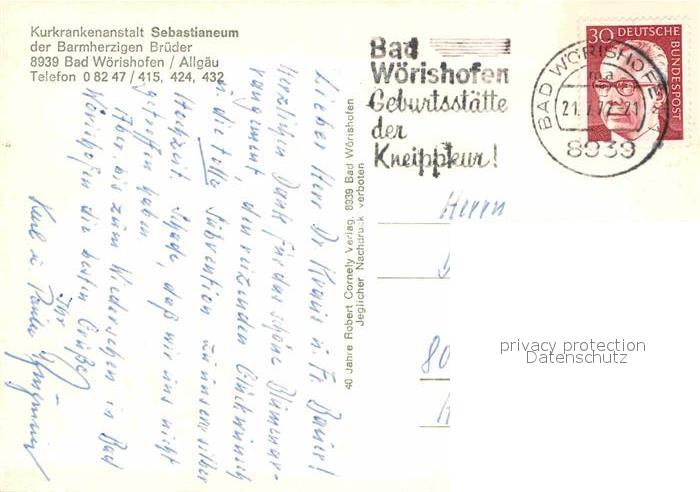 Kurkrankenanstalt Sebastianeum
der Barmherzigen Brüder
8939 Bad Wörishofen / Allgäu
Telefon 0 82 47 / 415, 424, 432
Lieber Herr Dr. Kraus u. Fr. Bauer!
Herzlichen Dank für das schöne Blumenar-
rangement, den reizenden Glückwunsch
u. die tolle Subvention zu unserer Silber
Hochzeit. Schade, daß wir uns nicht
getroffen haben.
Aber bis zum Wiedersehen in Bad
Wörishofen die besten Grüße
Ihr
Karl u.
40 Jahre Robert Cornely Verlag, 8939 Bad Wörishofen
Jeglicher Nachdruck verboten
Bad
Wörishofen
Geburtsstätte
der
Kneippkur!
BAD WÖRISHOFEN
ma
8939
30 DEUTSCHE
BUNDESPOST
Herrn
80
privacy protection
Datenschutz